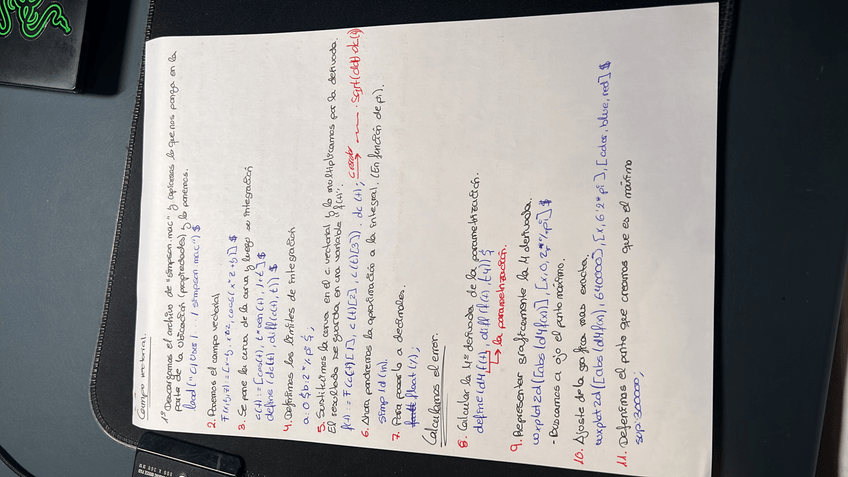 Campo vectorial.
1º Descargamos el archivo de "simpson.mac" y copiamos lo que nos ponga en la
parte de la ubicación (propiedades) y lo ponemos.
load ("C:/Users/.../simpson.mac") $
2. Ponemos el campo vectorial
3. Se pone la curva de la curva y luego se integración
define (dc(t), diff(c(t), t)) $
4. Definimos los límites de integración
a: 0 $ b: 2*%pi $;
5. Sustituimos la curva en el c. vectorial y lo multiplicamos por la derivada.
El resultado se guarda en una variable "f(t)".
f(t) := F(c(t)[1], c(t)[2], c(t)[3]) . dc(t);
6. Ahora pondremos la aproximación a la integral. (En función de pi).
7. Para pasarlo a decimales.
float (%);
Calculamos el error.
8. Calcular la 4ª derivada de la parametrización.
la parametrización.
9. Representar gráficamente la 4 derivada.
wxplot2d([abs(d4f(x))], [x, 0, 2*%pi]) $
- Buscamos a ojo el punto máximo.
10. Ajuste de la gráfica más exacta.
wxplot2d([abs(d4f(x)), 640000], [x, 6, 2*%pi], [color, blue, red]) $
11. Definimos el punto que creamos que es el máximo
sup: 300000;